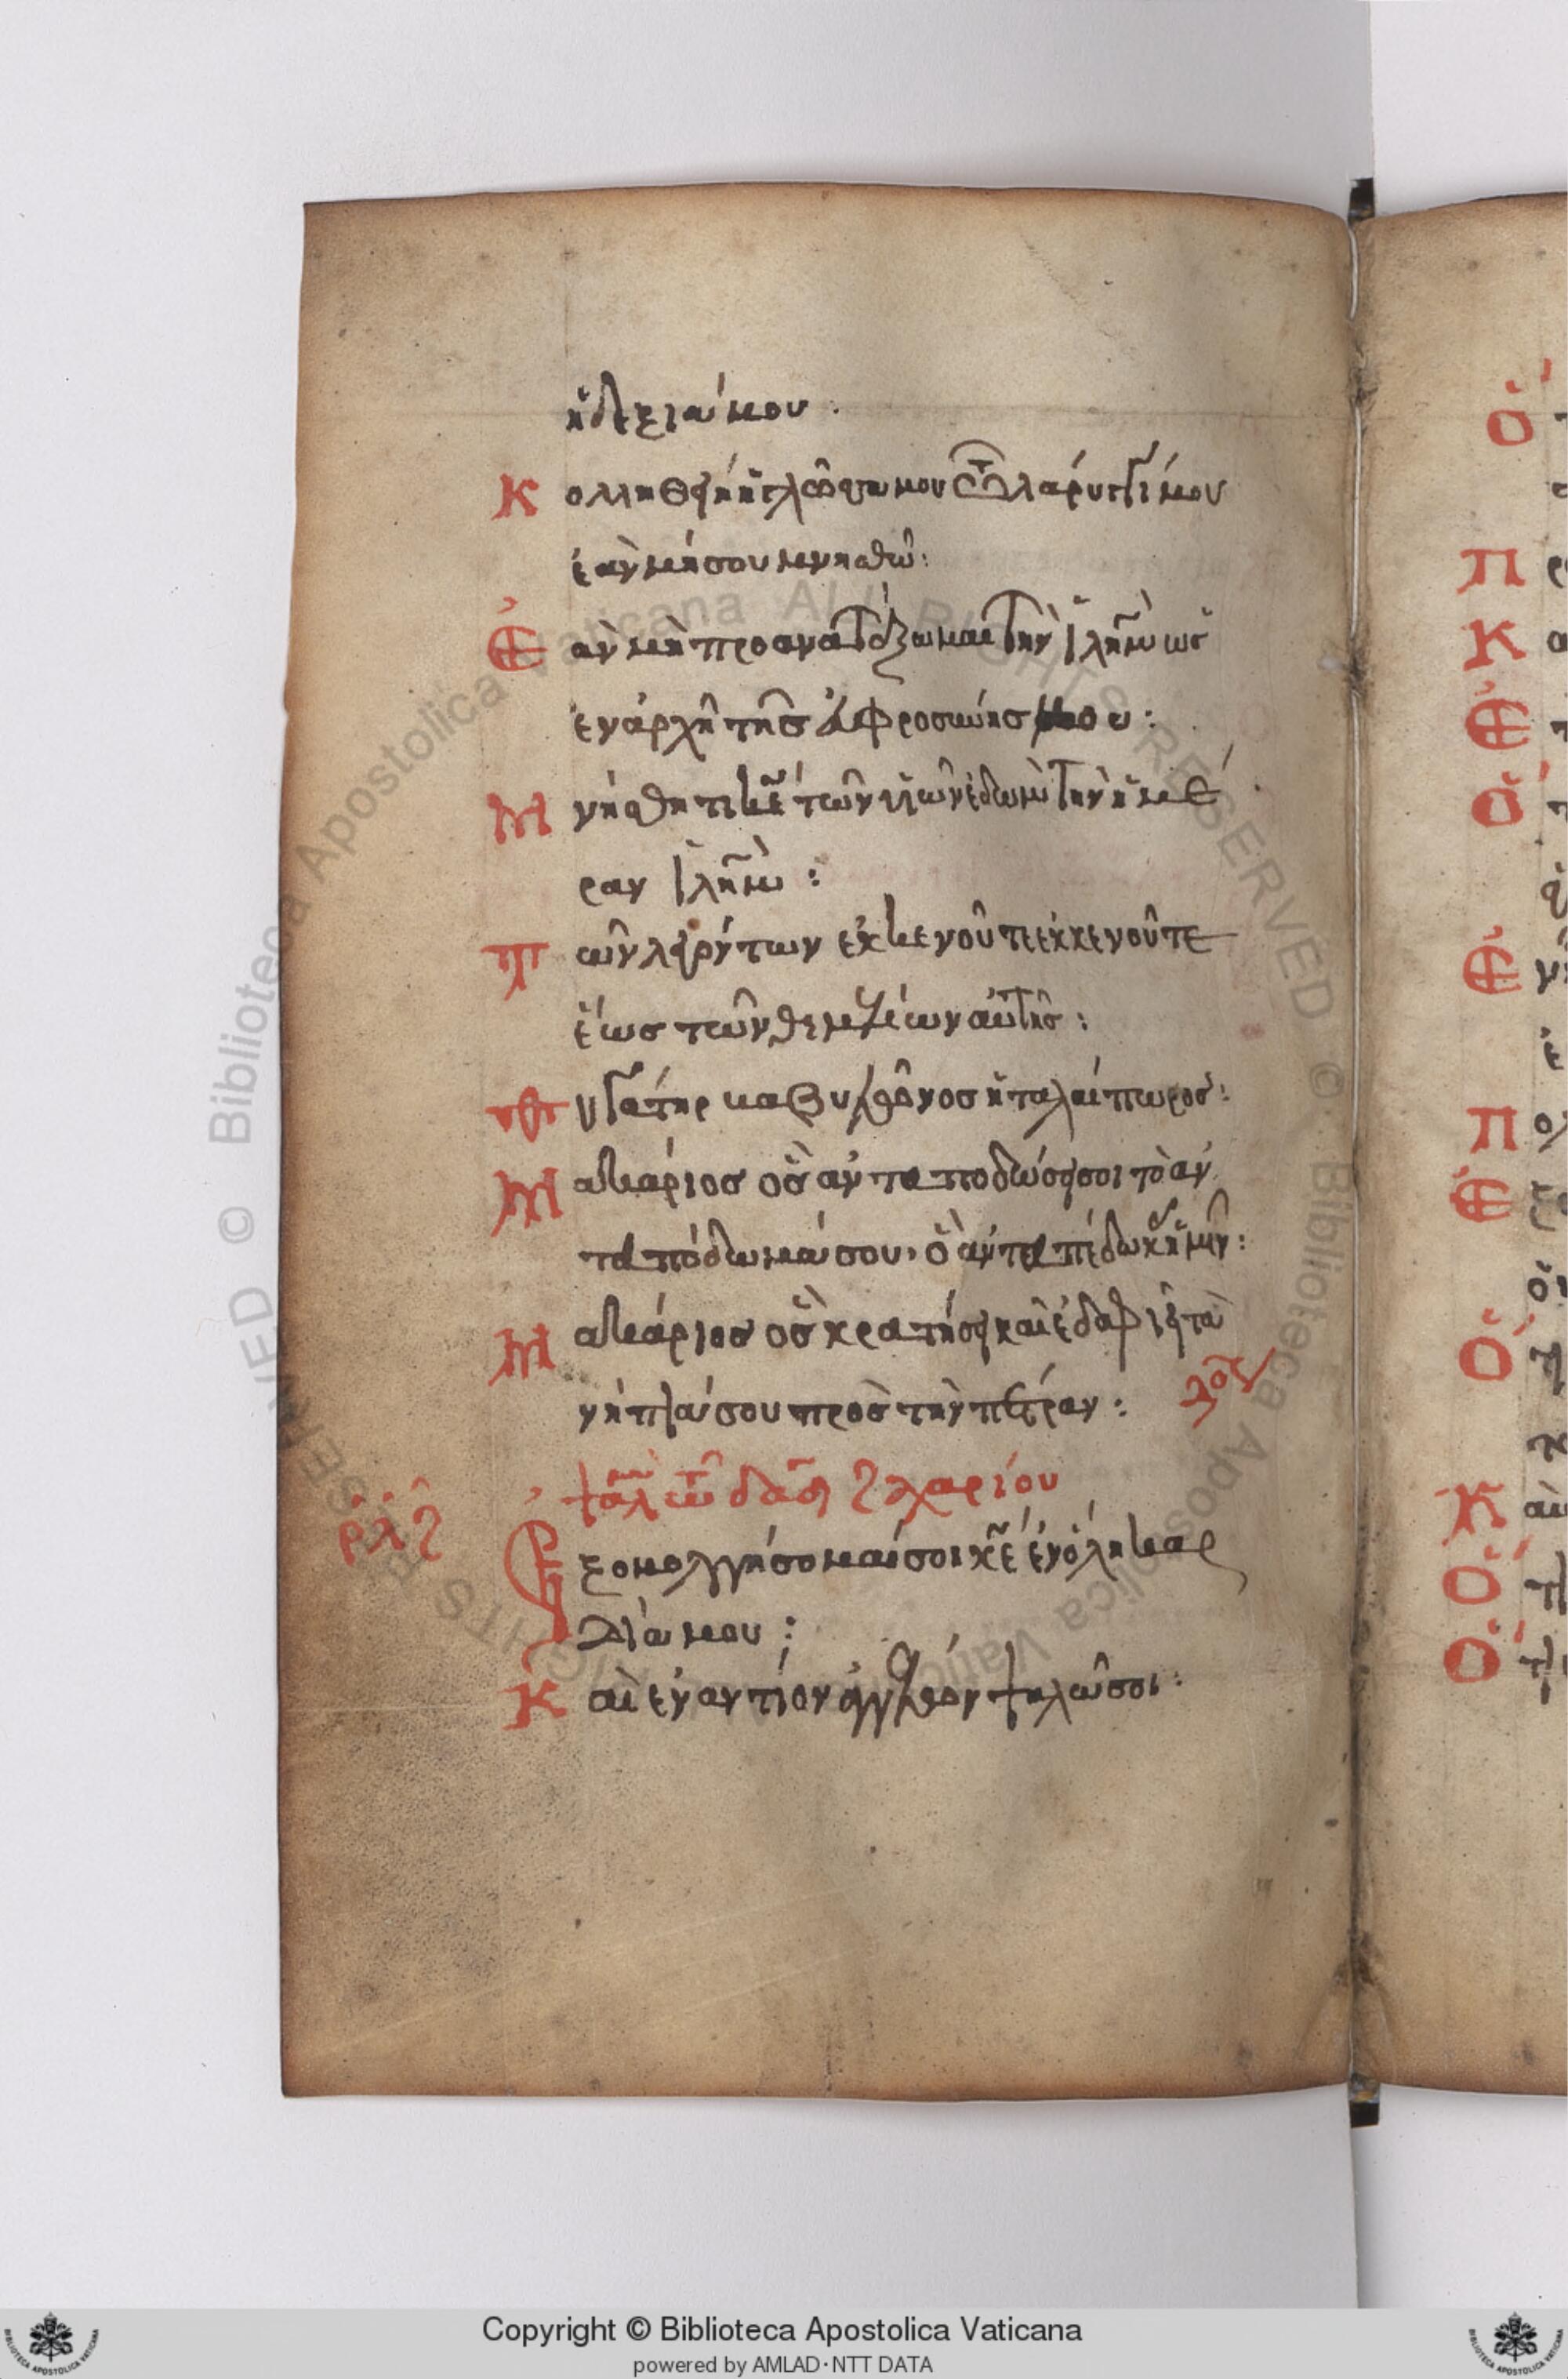 ἡ δεξιά μου.
Κολληθείη ἡ γλῶσσα μου τῶ λάρυγγί μου
ἐὰν μή σου μνησθῶ:
Ἐὰν μὴ προανατάξωμαι τὴν Ἱλημ ὡς
ἐν ἀρχῆ τῆς ἀφροσύνης μου:
Μνήσθητι κε τῶν υἱῶν ἐδὼμ τὴν ἡμέ
ραν Ἱλημ:
Τῶν λεγόντων ἐκκενοῦτε ἐκκενοῦτε
ἕως τῶν θεμελίων αὐτῆς:
Θυγάτηρ βαβυλῶνος ἡ ταλαίπωρος:
Μακάριος ὃς ἀνταποδώσει σοι τὸ αν
ταπόδωμά σου, ὃ ἀνταπέδωκας ἡμῖν:
Μακάριος ὃς κρατήσει καὶ ἐδαφιεῖ τὰ
νήπιά σου πρὸς τὴν πέτραν:
ψαλ τῶ δαδ ζαχαρίου
ρλζ
Ἐξομολογήσομαί σοι κε ἐν ὅλη καρ
δία μου:
Καὶ ἐναντίον ἀγγέλων ψαλῶ σοι:
Copyright © Biblioteca Apostolica Vaticana
powered by AMLAD·NTT DATA